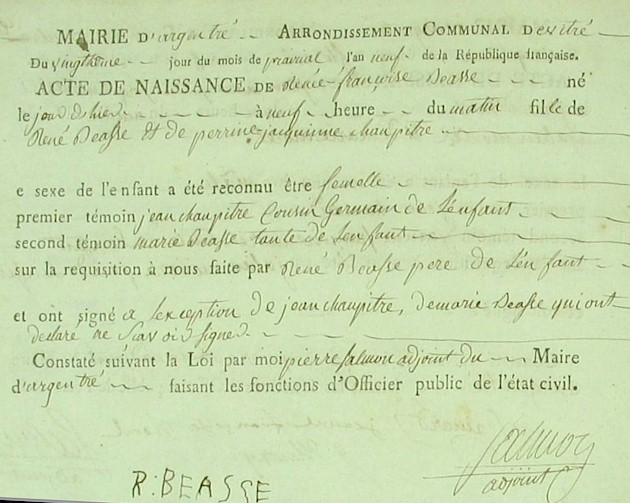 MAIRIE D'argentré ARRONDISSEMENT COMMUNAL Devitré
Du vingtième jour du mois de prairial l'an neuf de la République française.
ACTE DE NAISSANCE DE Renée-françoise Beasse né
le jour d'hier à neuf heure du matin fille de
René Beasse Et de perrine-jacquinne chaupitre
e sexe de l'enfant a été reconnu être femelle
premier témoin jean chaupitre Cousin Germain de L'enfant
second témoin marie Beasse tante de L'enfant
sur la requisition à nous faite par René Beasse pere de L'én fant
et ont signé a L'exception de jean chaupitre, de marie Beasse qui ont
declaré ne Scavoir signer
Constaté suivant la Loi par moi pierre Salmon adjoint du Maire
d'argentré faisant les fonctions d'Officier public de l'état civil.
Salmon
adjoint
R:BEASSE